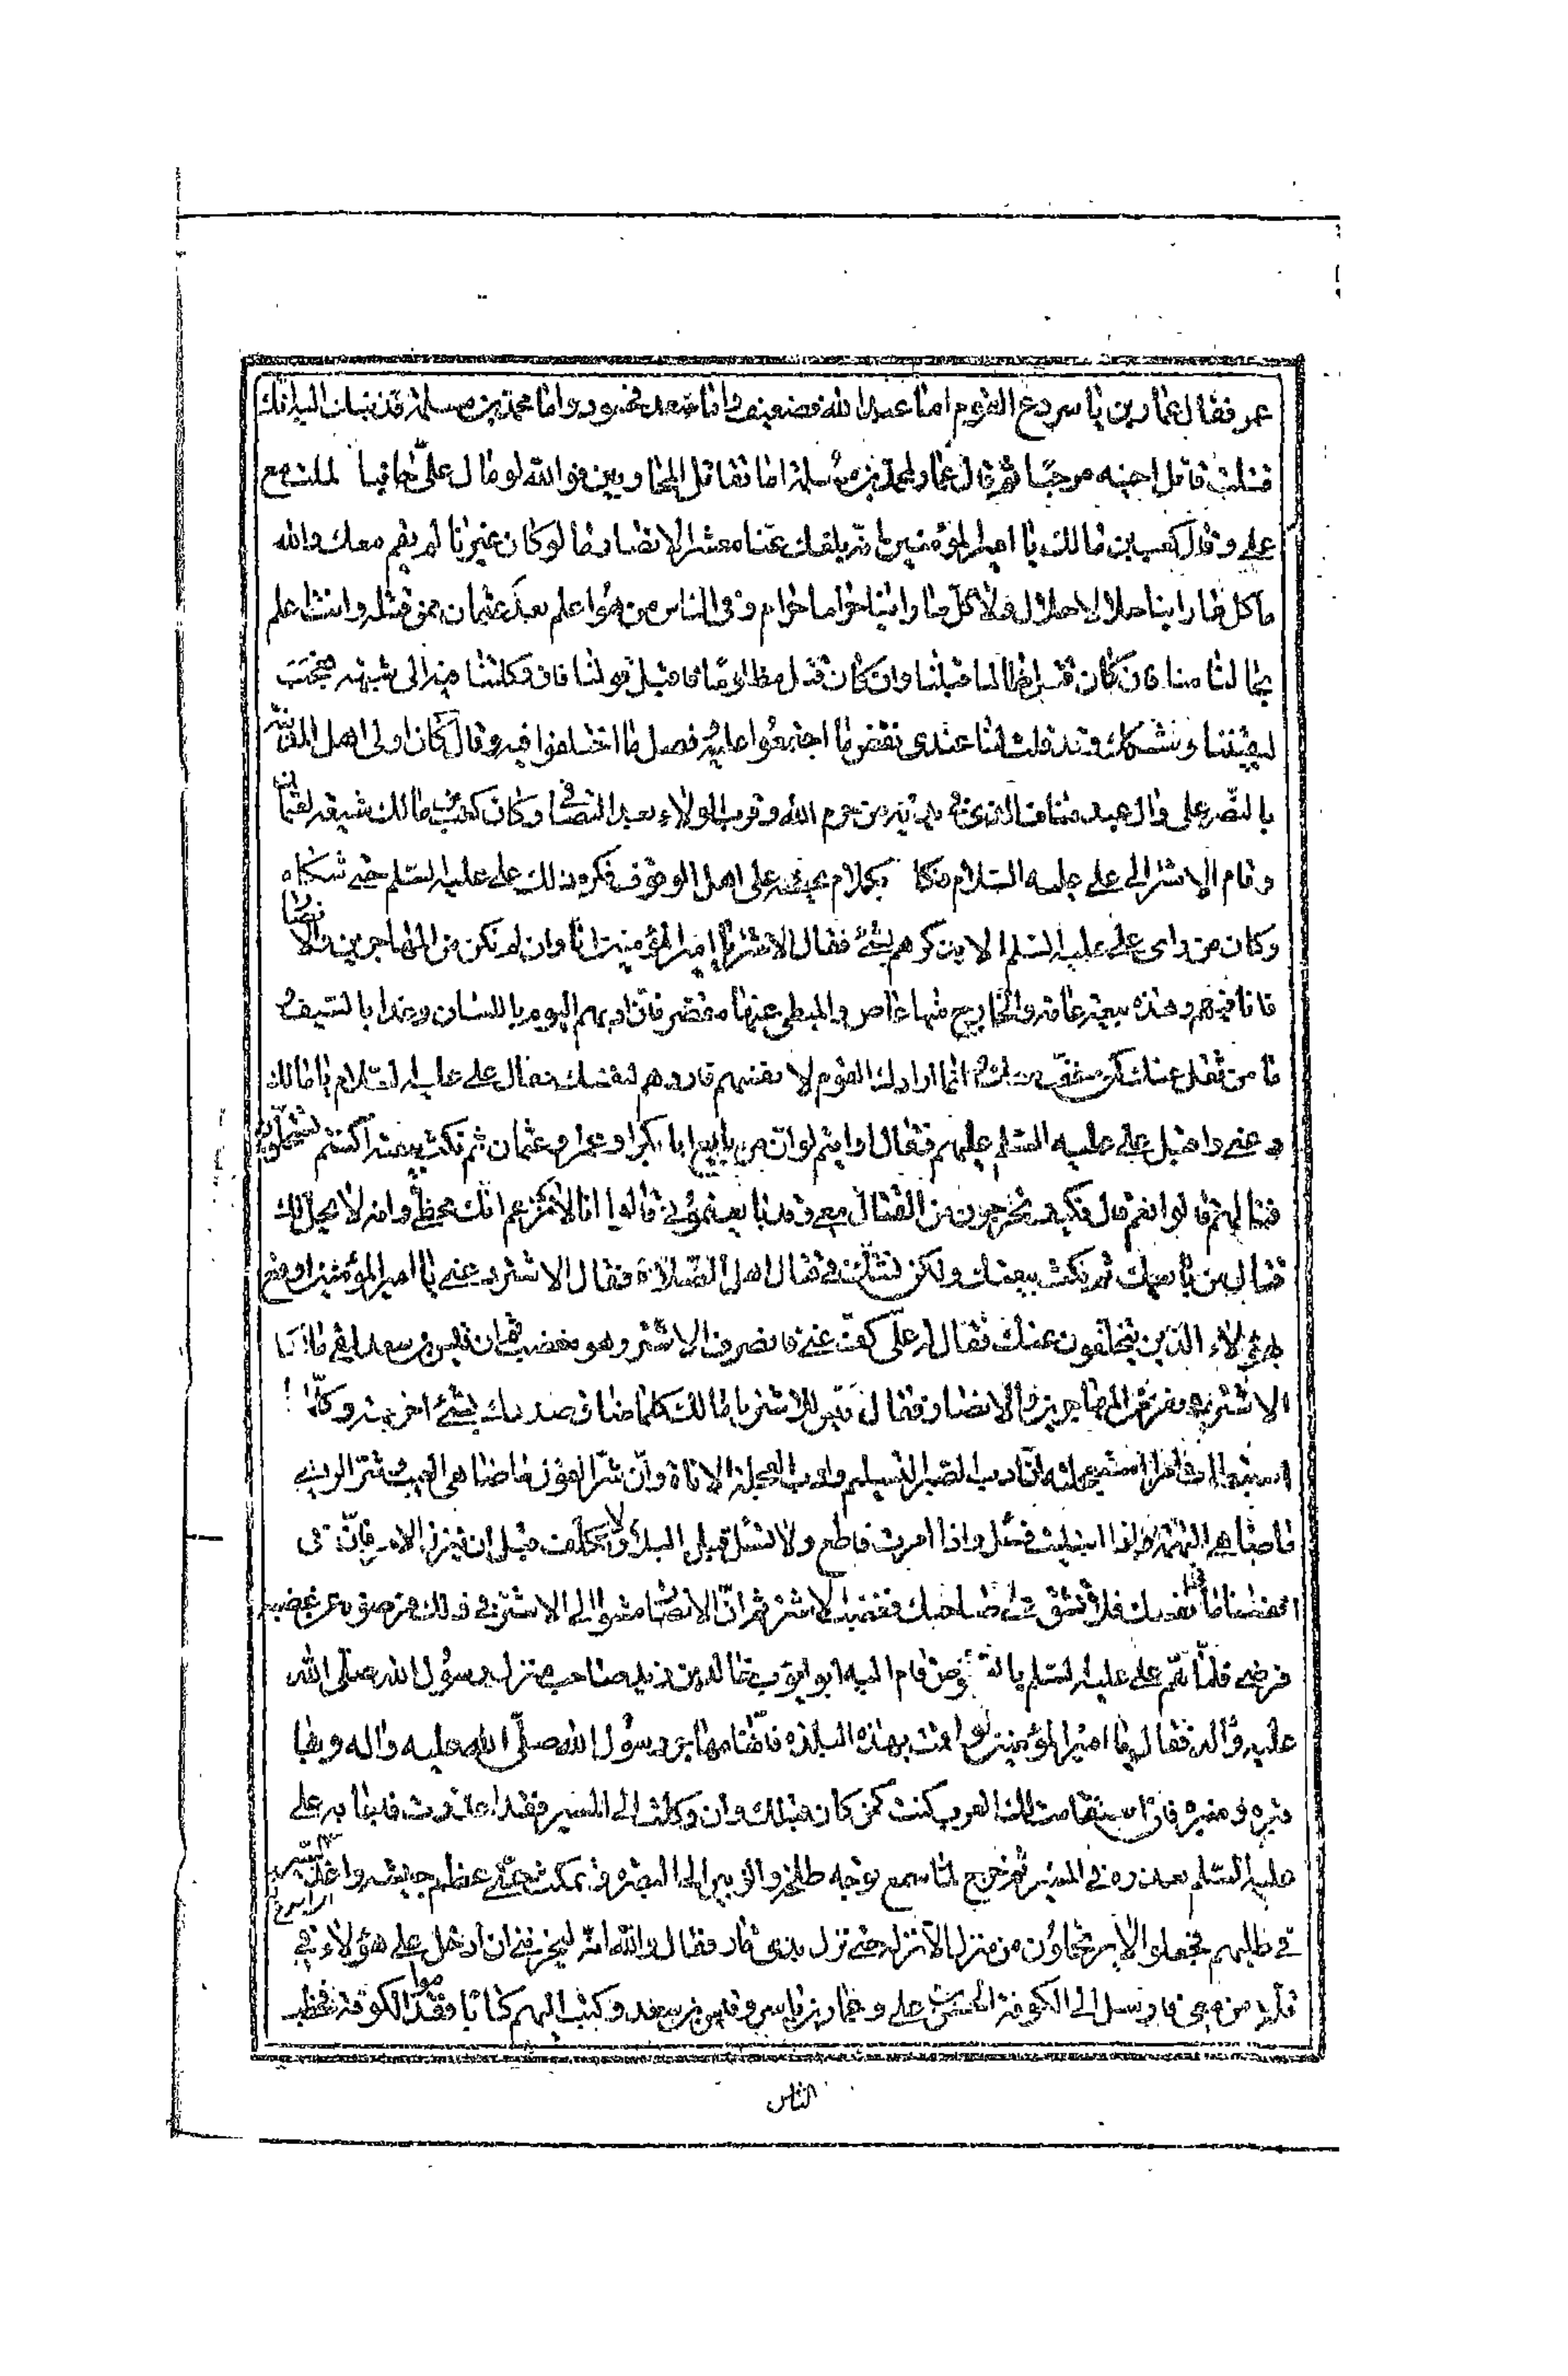 عمر فقال عمار بن ياسر دع القوم اما عبد الله فضعيف واما سعد فحسود واما محمد بن مسلمة فذنبك اليه انك
قتلت قاتل اخيه مرحبا ثم قال عمار لمحمد بن مسلمة اما تقاتل المحاربين فوالله لو مال علي جانبا لملت مع
علي وقال كعب بن مالك يا امير المؤمنين انه بلغك عنا معشر الانصار ما لو كان غيرنا لم يقم معك والله
ما كل ما راينا حلالا حلال ولا كل ما راينا حراما حرام وفي الناس من هو اعلم بعذر عثمان ممن قتله وانت اعلم
بحالنا منا فان كان قتل ظالما قبلنا وان كان قتل مظلوما فاقبل قولنا فان وكلتنا فيه الى شبهة فعجب
ليقيننا وشكك وقد قلت لنا عندي نقض ما اجتمعوا عليه وفصل ما اختلفوا فيه وقال كان اولى اهل المدينة
بالنصر علي وال عبد مناف للذي في يديه من حرم الله وقرب الولاء بعد التصافي وكان كعب بن مالك شيعة لعثمان
وقام الاشتر الى علي عليه السلام فكلمه بكلام يحضه على اهل الوقوف فكره ذلك علي عليه السلم حتى شكاه
وكان من راى علي عليه السلم الا يذكرهم بشئ فقال الاشتر يا امير المؤمنين انا وان لم نكن من المهاجرين والانصار
فانا فيهم وهذه بيعة عامة والخارج منها عاص والمبطي عنها مقصر فان ادبهم اليوم باللسان وغدا بالسيف
وما من ثقل عنك كمن خف معك وانما ارادك القوم لانفسهم فاردهم لنفسك فقال علي عليه السلام يا مالك
دعني واقبل علي عليه السلم عليهم فقال ارايتم لو ان من بايع ابا بكر او عمر او عثمان ثم نكث بيعته اكنتم تستحلون
قتالهم قالوا نعم قال فكيف تحرجون من القتال معي وقد بايعتموني قالوا انا لا نزعم انك مخطئ وانه لا يحل لك
قتال من بايعك ثم نكث بيعتك ولكن نشك في قتال اهل الصلاة فقال الاشتر دعني يا امير المؤمنين اوقع
بهؤلاء الذين يتخلفون عنك فقال له علي كف عني فانصرف الاشتر وهو مغضب ثم ان قيس بن سعد لقي مالكا
الاشتر في نفر من المهاجرين والانصار فقال قيس للاشتر يا مالك كلما ضاق صدرك بشئ اخرجته وكلما
استبطات امرا استعجلته ان ادب الصبر التسليم وادب العجلة الاناة وان شر القول ما ضاهى العيب وشر الراي
ما ضاهى التهمة فاذا ابتليت فسئل واذا امرت فاطع ولا تسئل قبل البلاء ولا تكلف قبل ان ينزل الامر فان في
انفسنا ما في نفسك فلا تشق على صاحبك فغضب الاشتر ثم ان الانصار مشوا الى الاشتر في ذلك فرضوه عن غضبه
فرضي فلما هم علي عليه السلم بالنهوض قام اليه ابو ايوب خالد بن زيد صاحب منزل رسول الله صلى الله
عليه واله فقال يا امير المؤمنين لو اقمت بهذه البلدة فانها مهاجر رسول الله صلى الله عليه واله وبها
قبره ومنبره فان استقامت لك العرب كنت كمن كان قبلك وان وكلت الى المسير فقد اعذرت فاجابه علي
عليه السلم بعذره في المسير ثم خرج لما سمع توجه طلحة والزبير الى البصرة وتمكث حتى عظم جيشه واغذ السير
في طلبهم فجعلوا لا يرتحلون من منزل الا نزله حتى نزل بذي قار فقال والله انه ليحزنني ان ادخل على هؤلاء في
قلة من معي فارسل الى الكوفة الحسن بن علي وعمار بن ياسر وقيس بن سعد وكتب اليهم كتابا فقدموا الكوفة فخطب
الناس